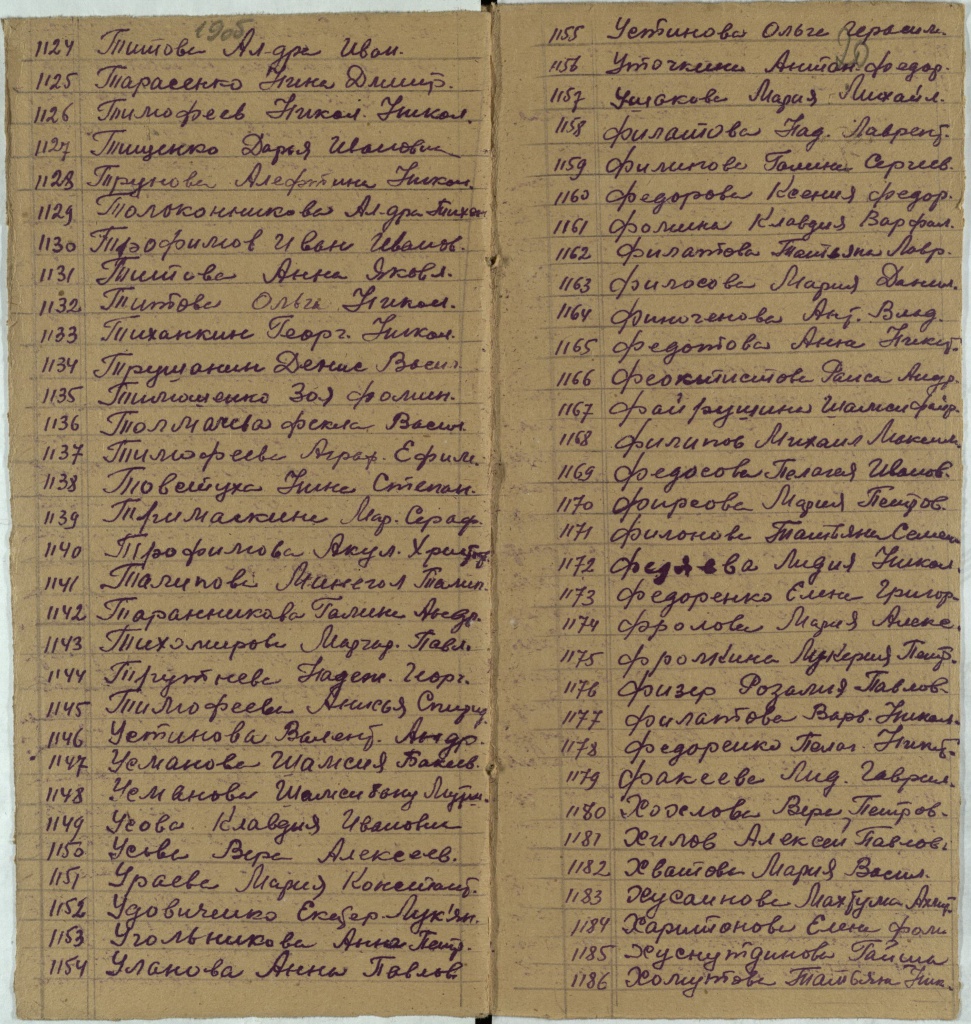 1905
1124 Титова Ал-дра Иван.
1125 Тарасенко Нина Дмитр.
1126 Тимофеев Никол. Никол.
1127 Тищенко Дарья Ивановна
1128 Трунова Алефтина Никол.
1129 Толоконникова Ал-дра Тихон
1130 Трофимов Иван Иванов.
1131 Титова Анна Яковл.
1132 Титова Ольга Никол.
1133 Тиханкин Георг. Никол.
1134 Трушанин Денис Васил.
1135 Тимошенко Зоя Фомин.
1136 Толмачева Фекла Васил.
1137 Тимофеева Аграф. Ефим.
1138 Товстуха Нина Степан.
1139 Тримаскина Мар. Сераф.
1140 Трофимова Акул. Христоф.
1141 Талипова Минегол Талип.
1142 Таранникова Галина Андр.
1143 Тихомирова Маргар. Павл.
1144 Трутнева Надеж. Геор.
1145 Тимофеева Анисья Спирид
1146 Устинова Валент. Андр.
1147 Усманова Шамсия
1148 Усманова
1149 Усова Клавдия Ивановна
1150 Усова Вера Алексеев.
1151 Ураева Мария Констант.
1152 Удовиченко Екатер Лукьян.
1153 Угольникова Анна Петр.
1154 Уланова Анна Павлов
1155 Устинова Ольга Герасим.
1156 Уточкина Антон. Федор.
1157 Ушакова Мария Михайл.
1158 Филатова Над. Лаврент.
1159 Филинова Галина Сергеев.
1160 Федорова Ксения Федор.
1161 Фомина Клавдия Варфол.
1162 Филатова Татьяна Лавр.
1163 Филосова Мария Данил.
1164 Финогенова Ант. Влад.
1165 Федотова Анна Никит.
1166 Феоктистова Раиса Андр.
1167 Файрушина Шамси
1168 Филипов Михаил Максим
1169 Федосова Пелагея Иванов.
1170 Фирсова Мария Петров.
1171 Филонова Татьяна Семен
1172 Федяева Лидия Никол.
1173 Федоренко Елена Григор.
1174 Фролова Мария Алекс.
1175 Фролкина Лукерия Петр.
1176 Физер Розалия Павлов.
1177 Филатова Варв. Никол.
1178 Федоренко Пелаг. Никит.
1179 Факеева Лид. Гаврил.
1180 Хохлова Вера Петров.
1181 Хилов Алексей Павлов.
1182 Хватова Мария Васил.
1183 Хусаинова Махтума Ахмет.
1184 Харитонова Елена Фом
1185 Хуснутдинова Гайша
1186 Хомутова Татьяна Ник.